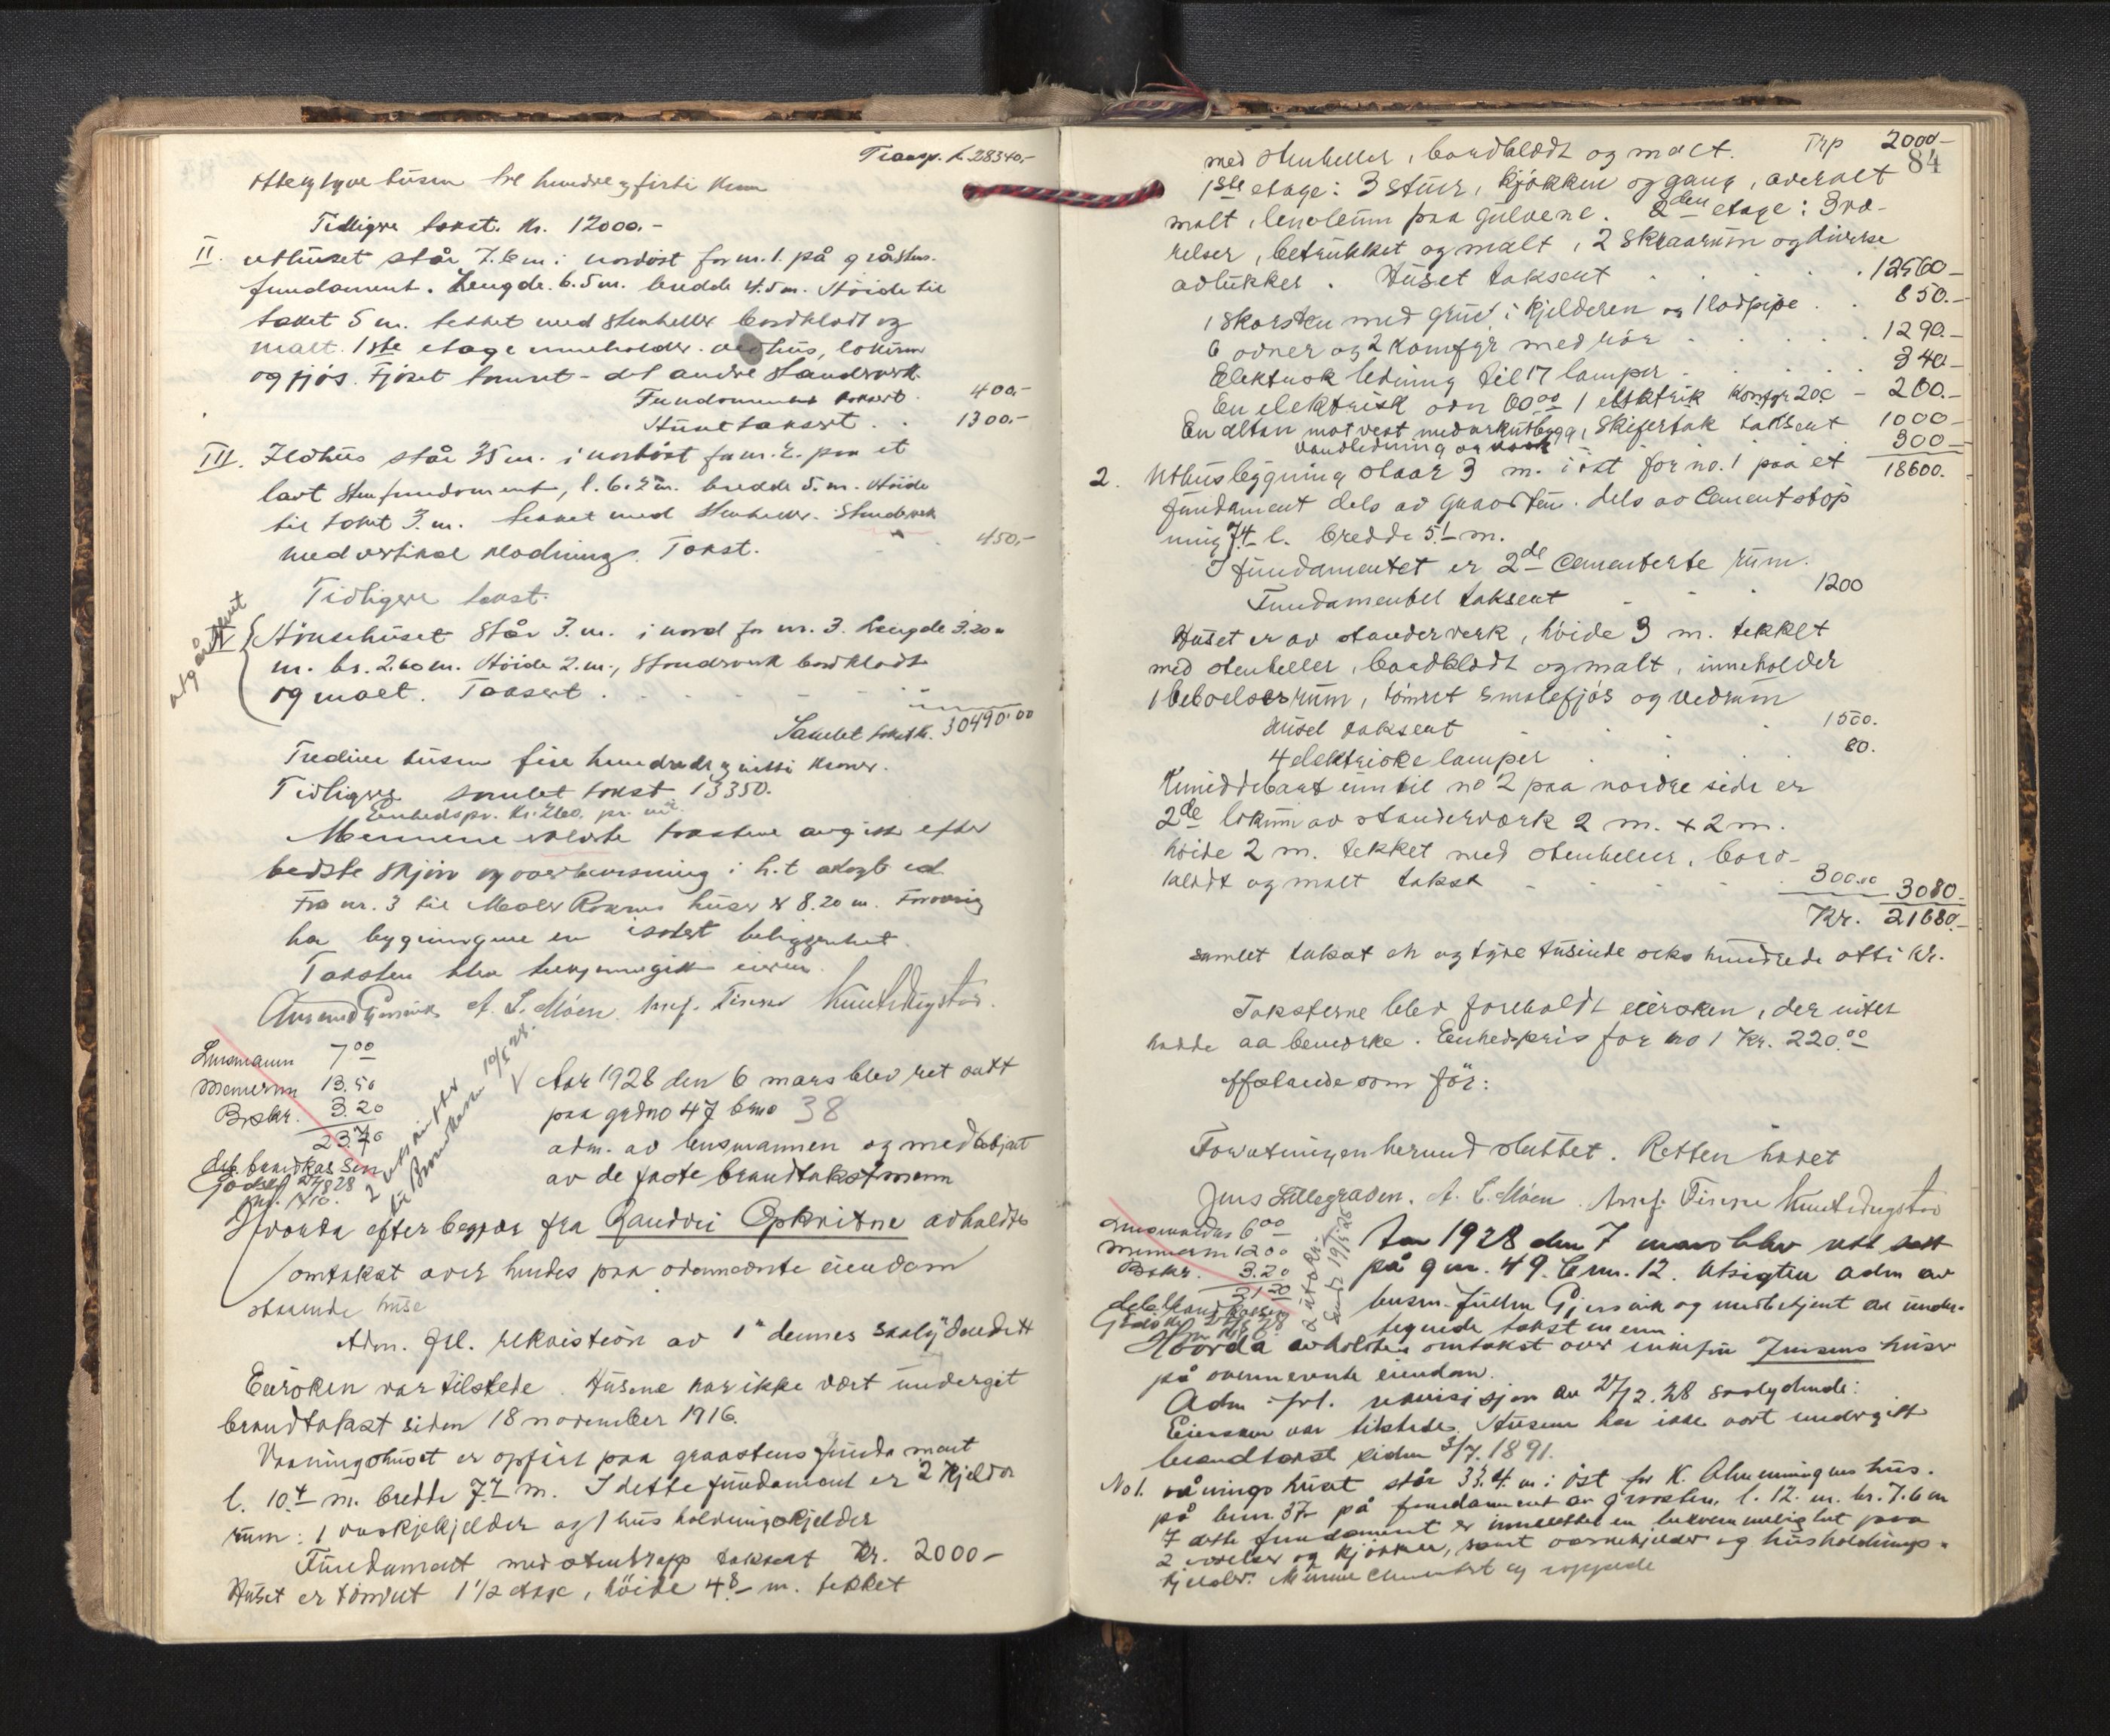 Transp. kr. 28340,-
otte og tyve tusen tre hundre og firti kron
Tidligre takst. Kr. 12000.-
II. uthuset står 7.6 m. i nordöst for nr. 1. på gråstens-
fundament. Lengde. 6.5 m. bredde 4.5 m. Höide til
taket 5 m. tekket med stenheller bordklædt og
malt. 1ste etage inneholder vedhus, lokum
og fjös. Fjöset tömret - det andre standverk.
Fundament taksert. 400,-
Huset taksert . . 1300,-
III. Ildhus står 35 m. i nordöst for nr. 2. paa et
lavt stenfundament, l. 6.2 m. bredde 5. m. Höide
til taket 3. m. tekket med stenheller. Stenderverk
med vertikal klædning. Takst. 450,-
Tidligere takst.
utgået
IV Hönsehuset står 3. m. i nord for nr. 3. Lengde 3.20
m. br. 2.60 m. Höide 2. m., standverk bordklædt
og malt. Taksert .
Samlet takst kr. 30490.00
Tredive tusen fire hundrede og nitti kroner.
Tidligere samlet takst 13350.
Enhedspr. Kr. 260. pr. m²
Mennene erklærte taksterne avgitt efter
bedste skjön og overbevisning i h.t. avlagt ed
Fra nr. 3 til huser er 8.20 m. Forövrig
har bygningene en isolert beliggenhet.
Taksten blev bekjentgjort eieren.
A. L. Moen. Knut Dugstad.
Lensmann 7 00
Mennerne 13.50
Brskr. 3.20
23.70
deb. brandkassen
2 utskrifter
til Brandkassen 10/5 28.
Aar 1928 den 6 mars blev ret satt
paa grdno 47 brno 38
adm. av lensmannen og medbetjent
av de faste brandtakstmenn
Hvorda efter begjær fra Gaudvei Opkvitne avholdtes
omtakst over hendes paa ovennævnte eiendom
staaende huse
Adm. frl. rekvisition av 1" dennes saalydende:
Eiersken var tilstede. Husene har ikke vært undergit
brandtakst siden 18 november 1916.
Vaaningshuset er opfört paa graastens fundament
l. 10.4 m. bredde 7.7 m. I dette fundament er 2 Kjelder
rum: 1 vaskjekjelder og 1 husholdningskjelder
Fundament med stentrapp taksert Kr. 2000-
Huset er tömret 1 1/2 etage, höide 4.8 m. tekket
84
med stenheller, bordklædt og malt. Trp 2000-
1ste etage: 3 stuer, kjökken og gang, overalt
malt, lenoleum paa gulvene. 2den etage: 3 væ-
relser, betrukket og malt, 2 skraarum og diverse
avlukker. Huset taksert . . . 12560-
1 skorsten med grue i kjelderen og 1 lodpipe . . 850.-
6 ovner og 2 komfyr med rör . . . 1290.-
Elektrisk ledning til 17 lamper . . . 340-
En elektrisk ovn 60.00 1 elektrik komfyr 200 - 200.-
En altan mot vest med utbygg, skifertak taksert 1000-
vandledning og vask 300-
18600.
2. Uthusbygning staar 3 m. i öst for no. 1 paa et
fundament dels av graasten. dels av Cementstöp
ning 7.4 l. bredde 5.1 m.
I fundamentet er 2de Cementerte rum.
Fundamentet taksert . . . 1200
Huset er av standerverk, höide 3 m. tekket
med stenheller, bordklædt og malt, inneholder
1 beboelsesrum, tömret smalefjös og vedrum
Huset taksert . . . 1500.
4 elektriske lamper . . . 80.
Umiddelbart inntil no 2 paa nordre side er
2de lokum av standerværk 2 m. x 2 m.
höide 2 m. tekket med stenheller, bord-
klædt og malt takst - - - 300.00 3080-
Kr. 21680.-
samlet takst en og tyve tusinde seks hundrede otti kr.
Taksterne blev foreholdt eiersken, der intet
hadde aa bemerke. Enhedspris for no 1 Kr. 220.00
Afslutende som för:
Forretningen hermed sluttet. Retten hævet
Jens Lillegraven. A. L. Moen. Knut Dugstad
Lensmandens 6 00
Mennerne 12 00
Brskr. 3.20
21 20
deb. brandkassen
Aar 1928 den 7 mars blev rett satt
på gnr. 49. brnr. 12. Utsigten adm av
lensm. fullm Gjersvik og medbetjent av under-
tegnede takstmenn.
Hvorda avholdtes omtakst over enkefru Jensens huser
på ovennevnte eiendom.
Adm - frl. rekvisisjon av 27/2. 28 saalydende:
Eiersken var tilstede. Husene har ikke vært undergitt
brandtakst siden 3/7. 1891.
No 1. våningshuset står 33.4. m. i öst for K. hus.
på brnr. 37 på fundament av gråsten, l. 12. m. br. 7.6 m
I dette fundament er innrettet en bekvemmelighet paa
2 værelser og kjökken, samt vaskekjelder og husholdnings-
kjelder. Murene Cementert og rappede